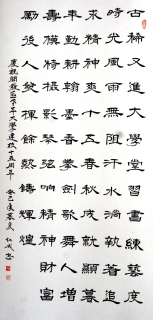 古稀又進大學堂習書練藝度
時光風雨無阻汗水淌執着追
求精神爽十五春秋成就顯暮
年勤耕翰墨香拳劍歌舞人增
壽模範精英譜弦精神財富
勵後人發揮餘熱鑄輝煌
慶祝開發區老年大學建校十五周年
癸巳年